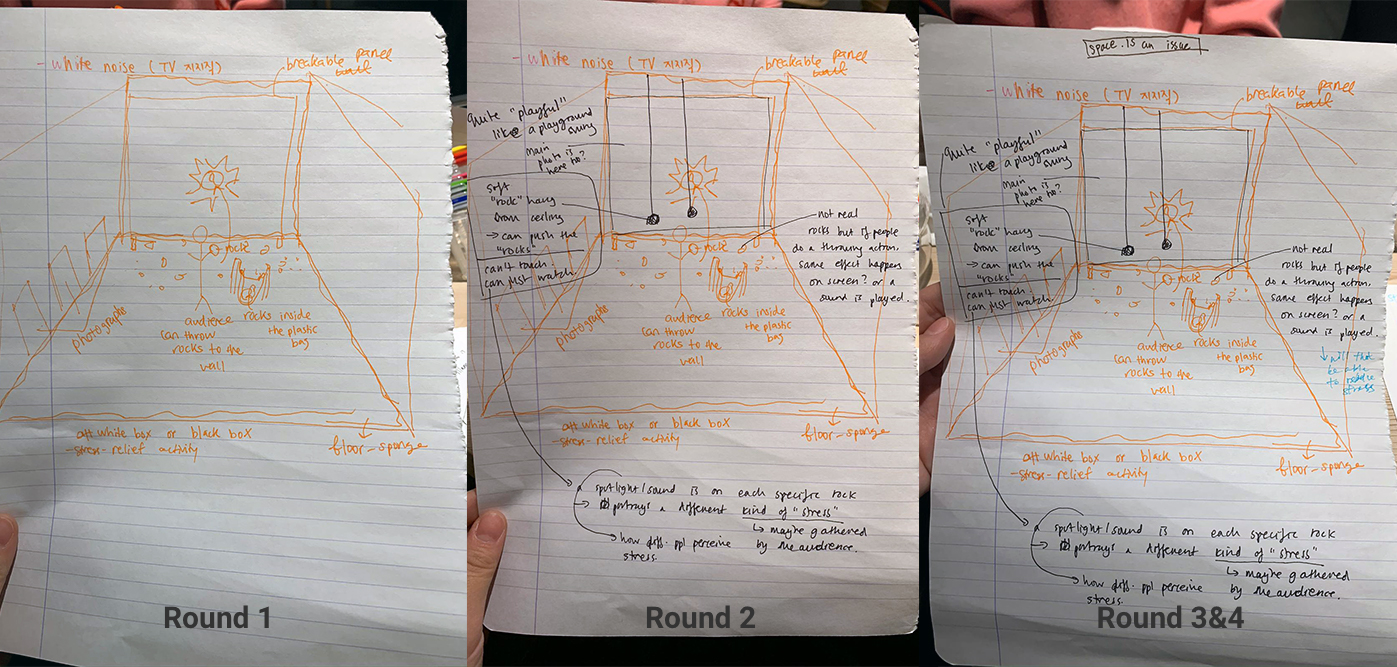 - white noise (TV 지지직)
breakable panel
wall
rock
photographs
audience
can throw
rocks to the
wall
rocks inside
the plastic
bag
art white box or black box
-stress-relief activity
floor-sponge
Round 1
- white noise (TV 지지직)
breakable panel
wall
quite "playful"
like a playground
swing
main
photo is
here no?
soft
"rock" hang
from ceiling
→ can push the
"rocks"
can't touch.
can just watch
rock
not real
rocks but if people
do a throwing action,
same effect happens
on screen? or a
sound is played.
photographs
audience
can throw
rocks to the
wall
rocks inside
the plastic
bag
art white box or black box
-stress-relief activity
floor-sponge
spotlight/sound is on each specific rock
→ portrays a different kind of "stress"
↳ maybe gathered
by the audience.
→ how diff. ppl perceive
stress.
Round 2
space is an issue
- white noise (TV 지지직)
breakable panel
wall
quite "playful"
like a playground
swing
main
photo is
here no?
soft
"rock" hang
from ceiling
→ can push the
"rocks"
can't touch.
can just watch
rock
not real
rocks but if people
do a throwing action,
same effect happens
on screen? or a
sound is played.
↓ will that
be able
to reduce
stress
photographs
audience
can throw
rocks to the
wall
rocks inside
the plastic
bag
art white box or black box
-stress-relief activity
floor-sponge
spotlight/sound is on each specific rock
→ portrays a different kind of "stress"
↳ maybe gathered
by the audience.
→ how diff. ppl perceive
stress.
Round 3&4